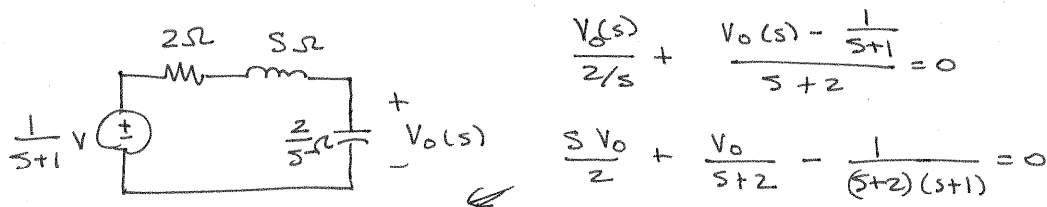 2Ω SΩ
1/(S+1) V
2/S Ω
+
V₀(s)
-
V₀(s)/(2/s) + (V₀(s) - 1/(S+1))/(S+2) = 0
S V₀/2 + V₀/(S+2) - 1/((S+2)(S+1)) = 0